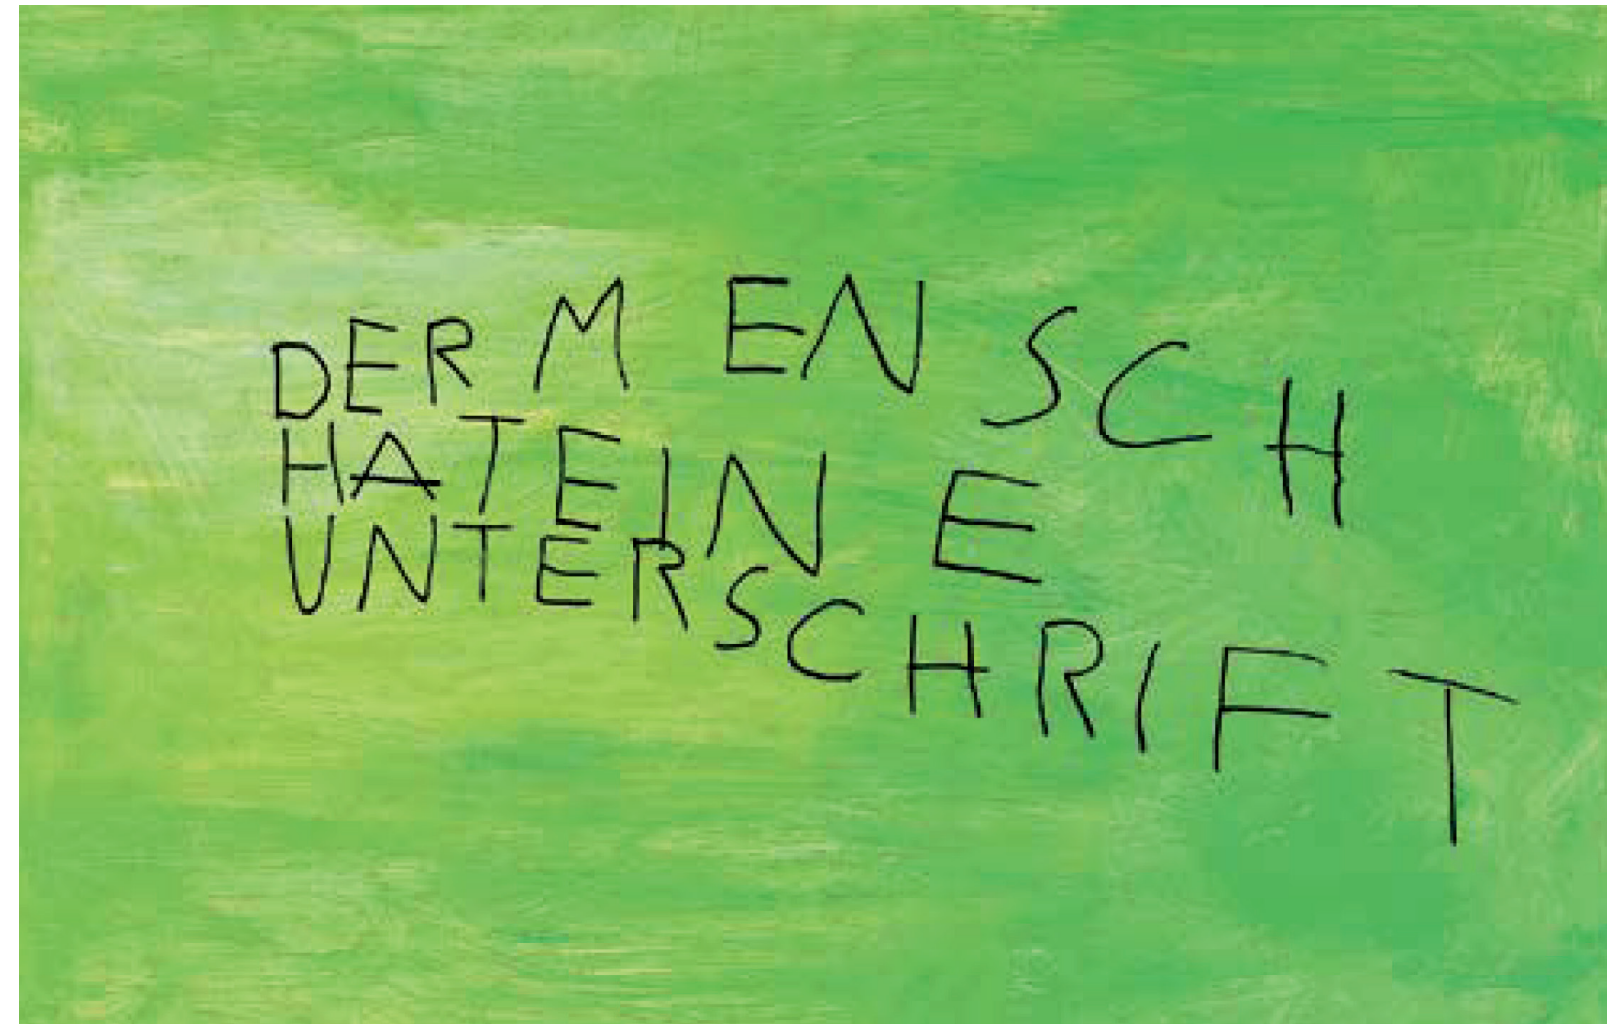 DER MENSCH
HAT EINE
UNTERSCHRIFT